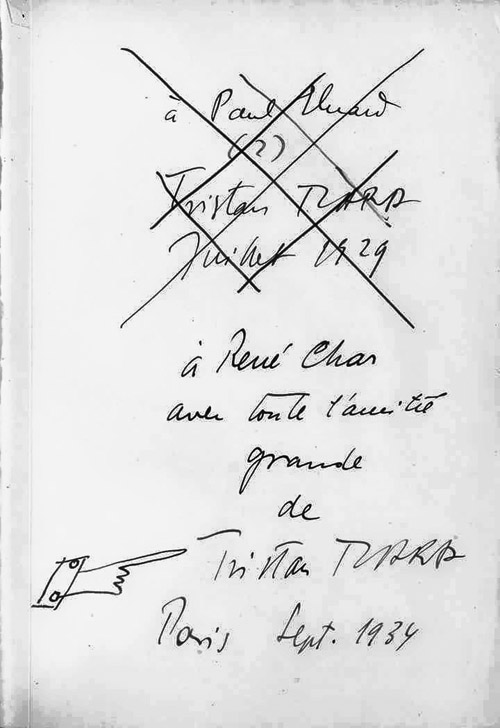 à Paul Eluard
(2)
Tristan TZARA
Juillet 1929
à René Char
avec toute l'amitié
grande
de
Tristan TZARA
Paris Sept. 1934